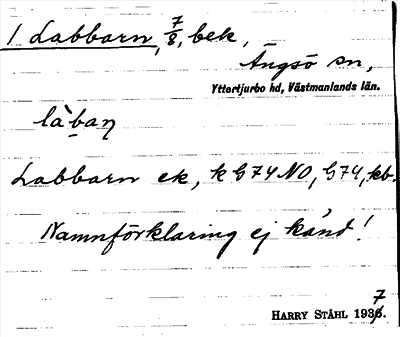 1 Labbarn, 7/8, bek,
Ängsö sn,
Yttertjurbo hd, Västmanlands län.
là̀ban̥
Labbarn ek, k G74 NO, G74, kb.
Namnförklaring ej känd!
7
HARRY STÅHL 1936.